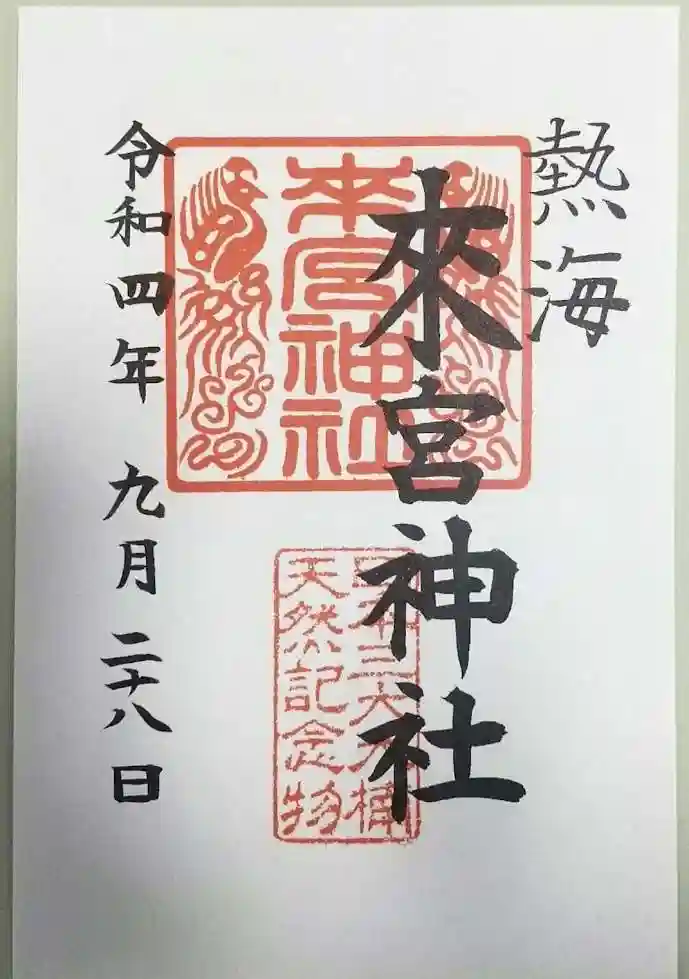 熱海
來宮神社
來宮神社
日本三大大楠
天然記念物
令和四年 九月 二十八日